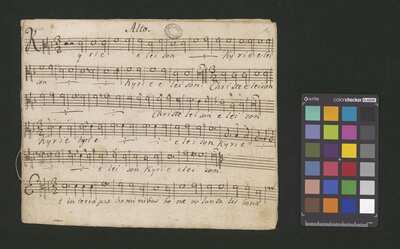 Alto.
Kyrie e leison Kyrie elei
son Kyrie e leison Christe eleison
Christe leison e leison
Kyrie kyrie e leison Kyrie
e lei son Kyrie elei son
Et in terra pax hominibus bo ne vo
colorchecker CLASSIC